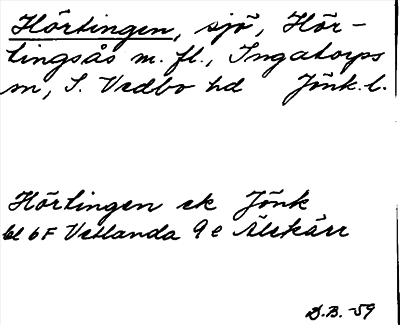 Hörtingen, sjö, Hör-
tingsås m. fl., Ingatorps
sn, S. Vedbo hd Jönk. l.
Hörtingen ek Jönk
bl 6F Vetlanda 9 e Älekärr
D.B. -59